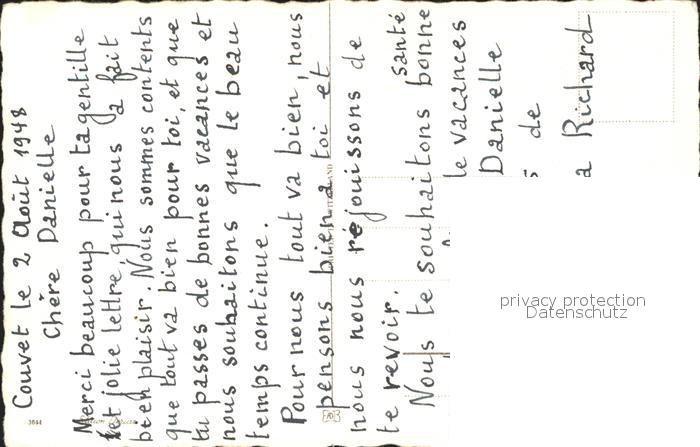 Couvet le 2 Août 1948
Chère Danielle
Merci beaucoup pour ta gentille
et jolie lettre, qui nous a fait
bien plaisir. Nous sommes contents
que tout va bien pour toi, et que
tu passes de bonnes vacances et
nous souhaitons que le beau
temps continue.
Pour nous tout va bien, nous
pensons bien a toi et
nous nous réjouissons de
te revoir. santé
Nous te souhaitons bonne
le vacances
Danielle
de
a Richard
3644
privacy protection
Datenschutz